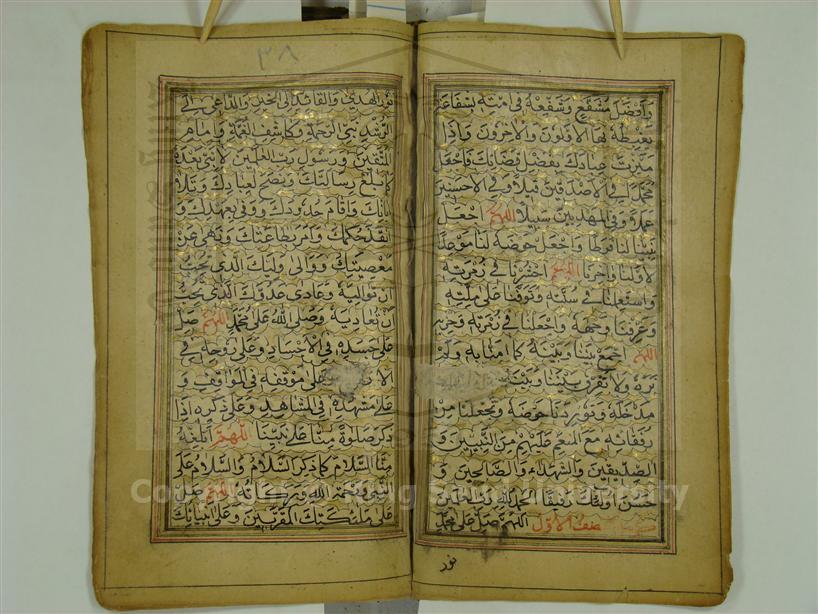 وأفضل مشفع وشفعه في امته بشفاعة
يغبطه بها الاولون والآخرون واذا
ميزت عبادك بفضل قضائك فاجعل
محمدا في الاصدقين قيلا وفي الاحسنين
عملا وفي المهديين سبيلا اللهم اجعل
نبينا لنا فرطا واجعل حوضه لنا موعدا
لاولنا وآخرنا اللهم احشرنا في زمرته
واستعملنا في سنته وتوفنا على ملته
وعرفنا وجهه واجعلنا في زمرته وحزبه
اللهم اجمع بيننا وبينه كما آمنا به ولم
نره ولا تفرق بيننا وبينه
مدخله وتوردنا حوضه وتجعلنا من
رفقائه مع المنعم عليهم من النبيين و
الصديقين والشهداء والصالحين و
حسن اولئك رفيقا الحمد لله رب العالمين
نصف الاول اللهم صل على محمد
نور
٣٨
نور الهدى والقائد الى الخير والداعي الى
الرشد نبي الرحمة وكاشف الغمة وامام
المتقين ورسول رب العلمين لا نبي بعده
كما بلغ رسالتك ونصح لعبادك وتلا
آياتك واقام حدودك ووفى بعهدك و
انفذ حكمك وامر بطاعتك ونهى عن
معصيتك ووالى وليك الذي تحب
ان تواليه وعادى عدوك الذي تحب
ان تعاديه وصلى الله على محمد اللهم صل
على جسده في الاجساد وعلى روحه في
الارواح وعلى موقفه في المواقف و
على مشهده في المشاهد وعلى ذكره اذا
ذكر صلوة منا على نبينا اللهم ابلغه
منا السلام كما ذكر السلام والسلام على
النبي ورحمة الله وبركاته اللهم صل
على ملئكتك المقربين وعلى انبيائك
Copyright © King Saud University